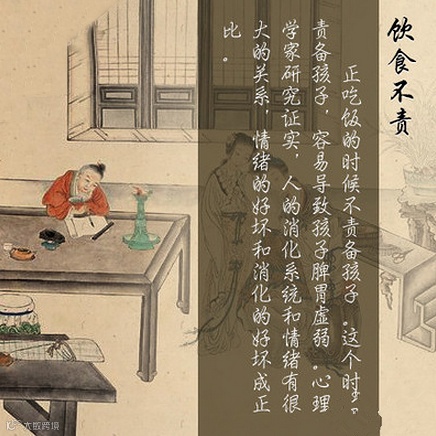 饮食不责
正吃饭的时候不责备孩子。这个时
责备孩子，容易导致孩子脾胃虚弱。心理
学家研究证实，人的消化系统和情绪有很
大的关系，情绪的好坏和消化的好坏成正
比。
大数跨境